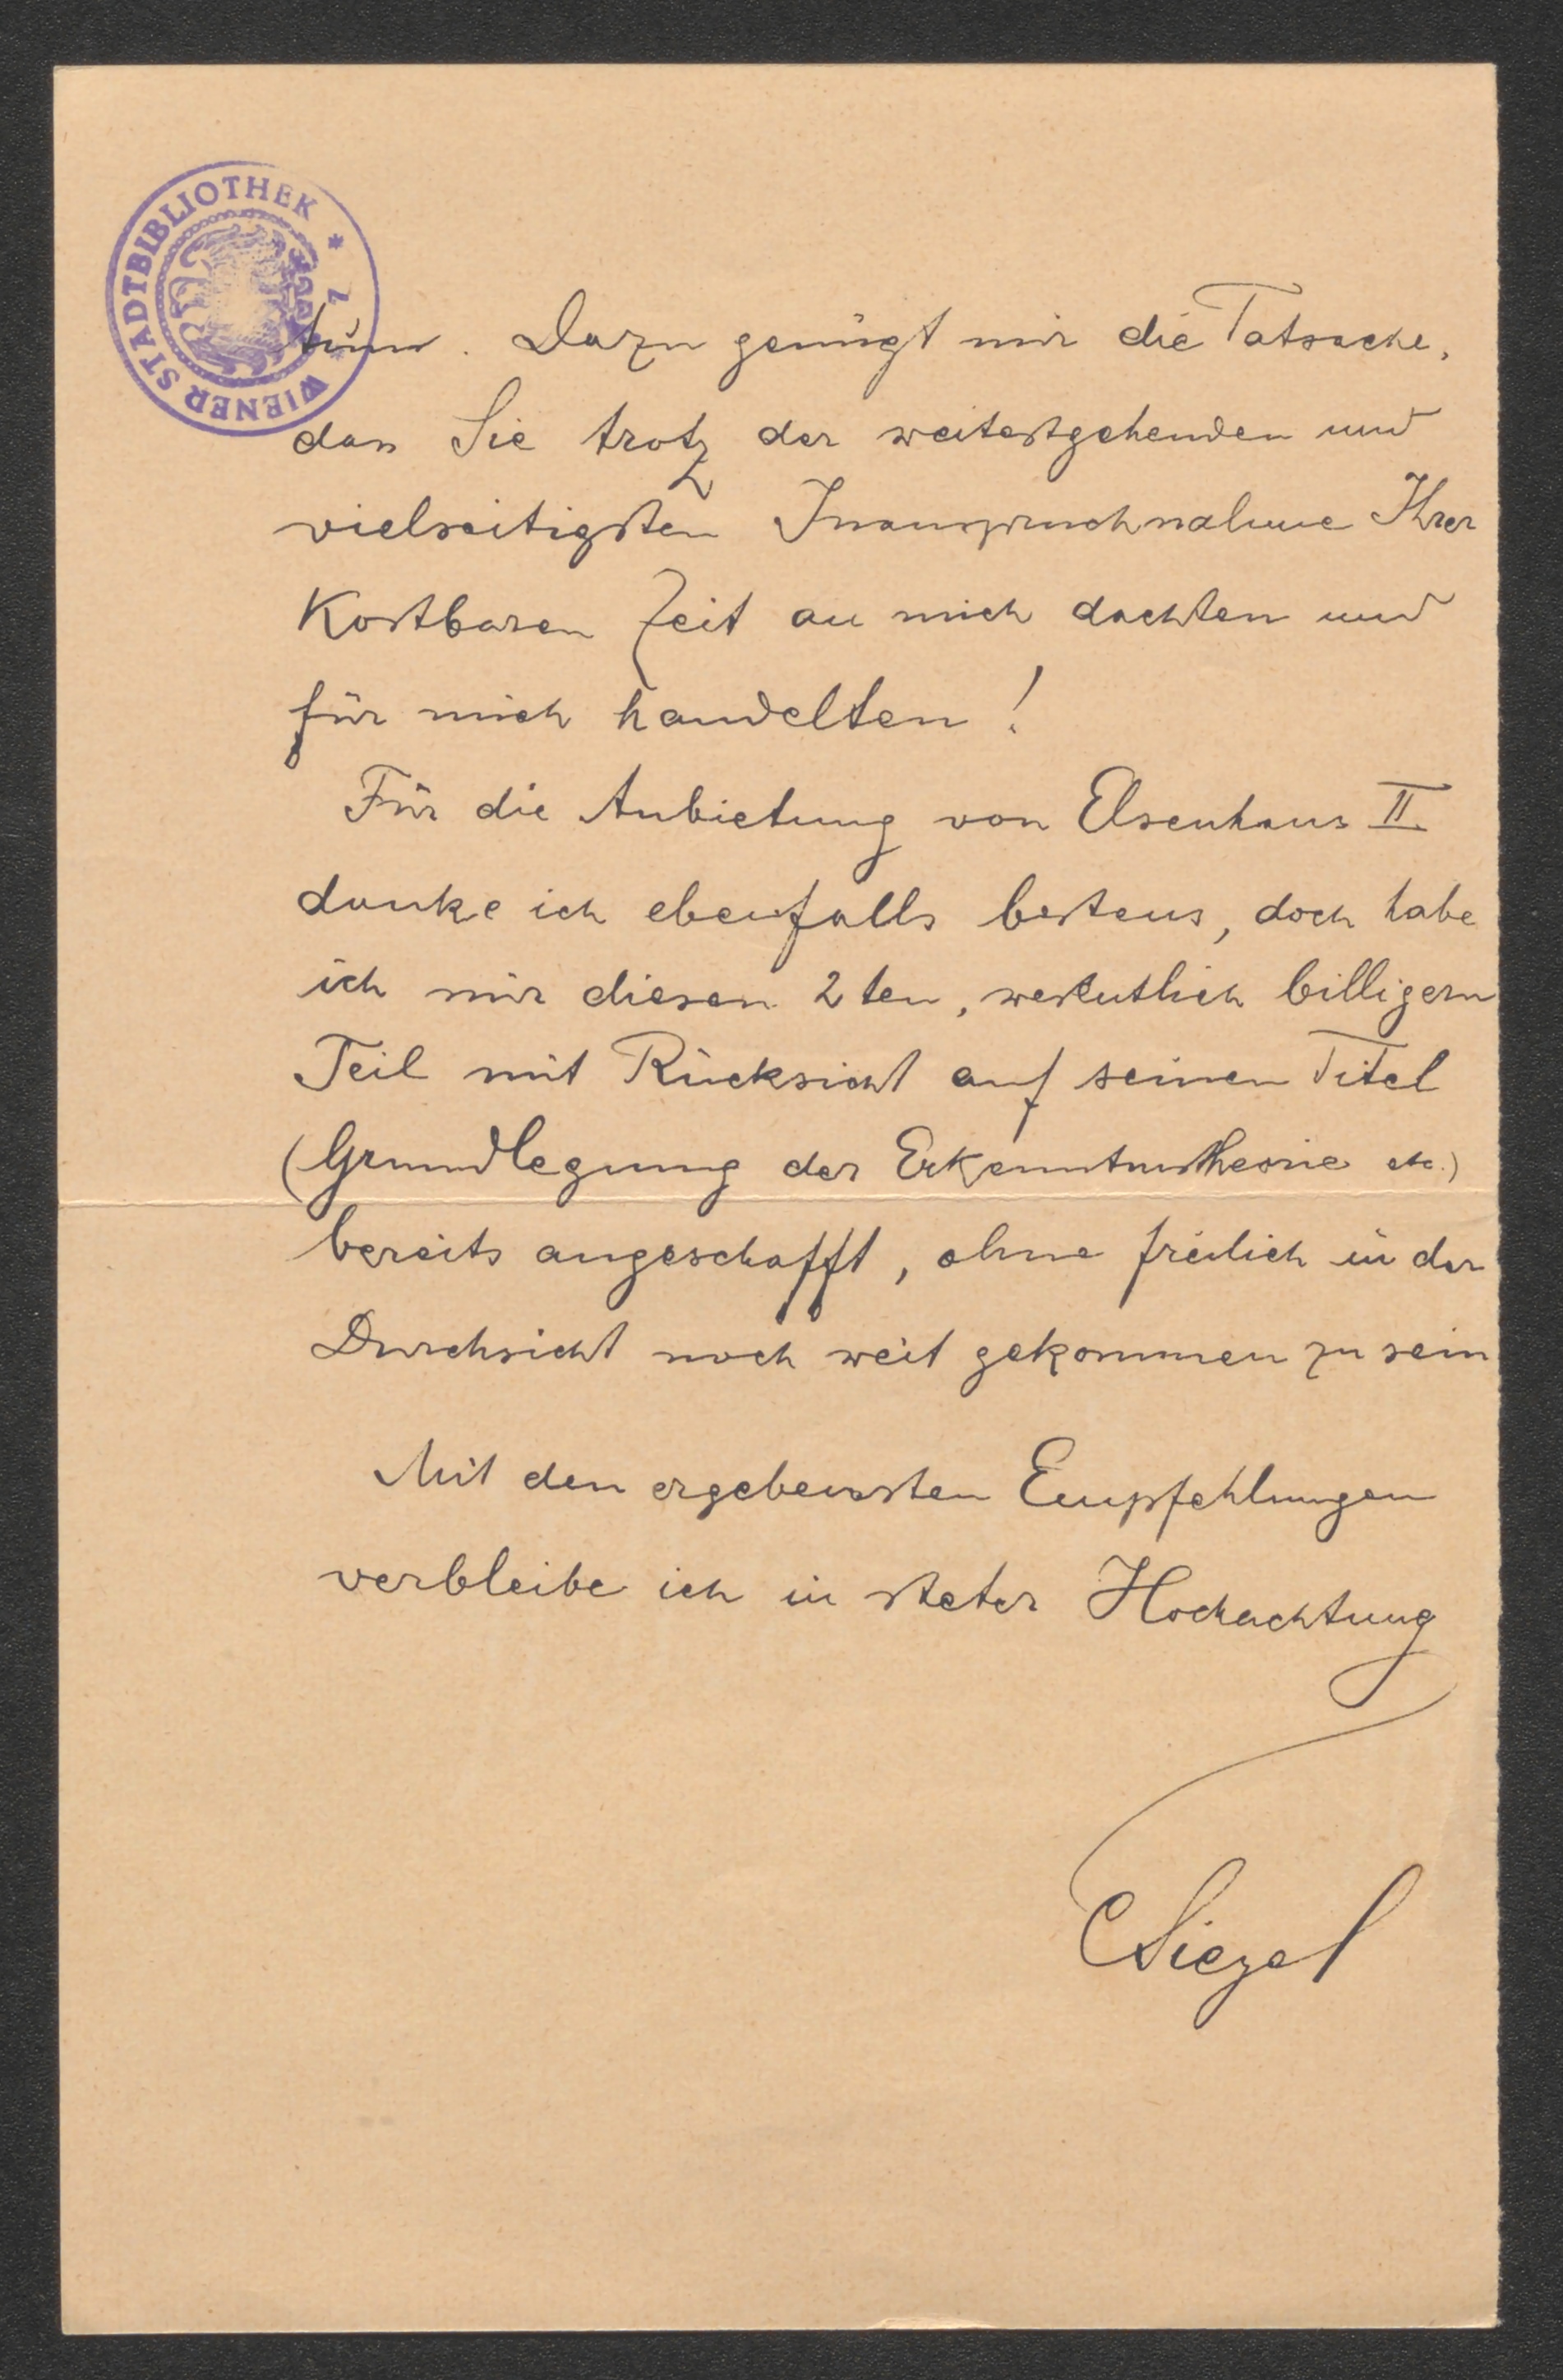 WIENER STADTBIBLIOTHEK *
tun. Dazu genügt mir die Tatsache,
dass Sie trotz der weitestgehenden und
vielseitigsten Inanspruchnahme Ihrer
Kostbaren Zeit an mich dachten und
für mich handelten!
Für die Anbietung von Elsenhans II
danke ich ebenfalls bestens, doch habe
ich mir diesen 2ten, wesentlich billigern
Teil mit Rücksicht auf seinen Titel
(Grundlegung der Erkenntnistheorie etc.)
bereits angeschafft, ohne freilich in der
Durchsicht noch weit gekommen zu sein
Mit den ergebensten Empfehlungen
verbleibe ich in steter Hochachtung
CSiegel